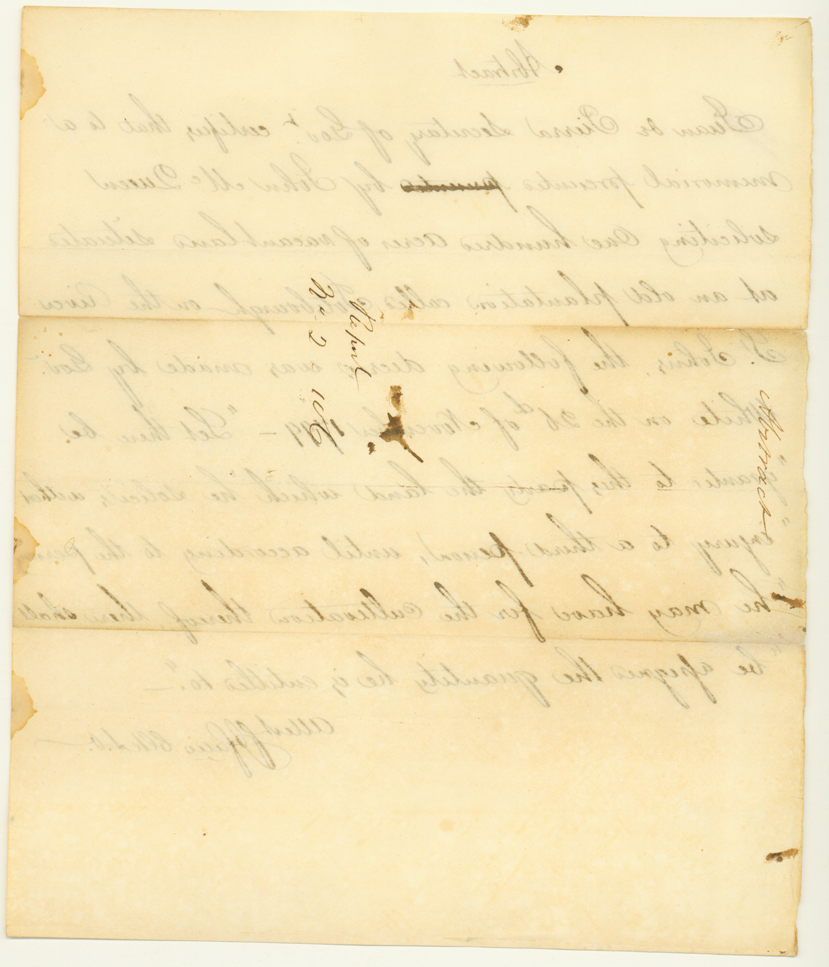 Abstract
Juan de Pierra Secretary of Govt. certifies that to a
memorial presented presented by John Mc Queen
soliciting One hundred acres of vacant land situated
at an old plantation called on the River
St. Johns, the following decree was made by Govr.
White on the 26th of November 1799 — "Let there be
"granted to this party the land which he solicits, without
"injury to a third person, until according to the
"he may have for the cultivation thereof there shall
"be assigned the quantity he is entitled to." —
Attest
No. 2
Abstract